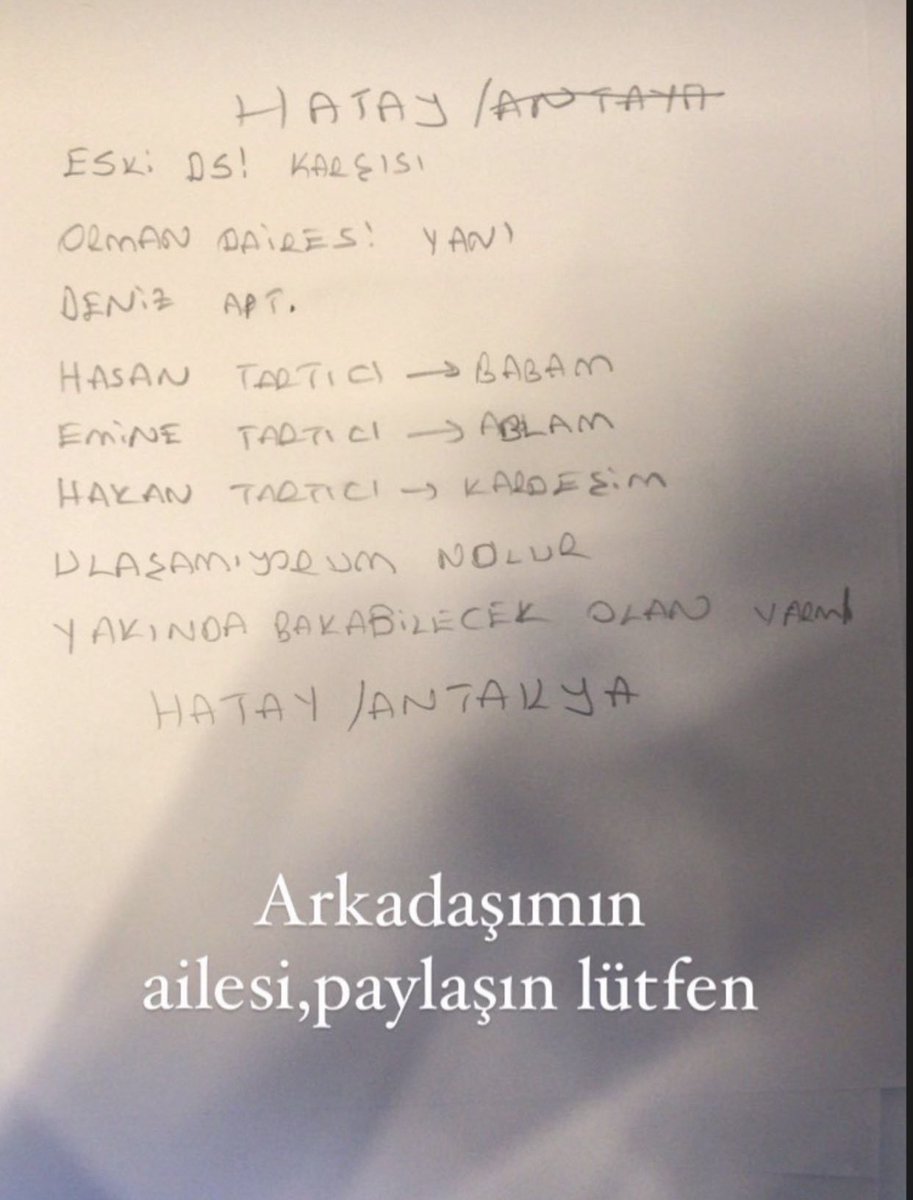 HATAY /ANTAYA
ESKİ DSİ KARŞISI
ORMAN DAİRESİ YANI
DENİZ APT.
HASAN TARTICI → BABAM
EMİNE TARTICI → ABLAM
HAKAN TARTICI → KARDEŞİM
ULAŞAMIYORUM NOLUR
YAKINDA BAKABİLECEK OLAN VARMI
HATAY /ANTAKYA
Arkadaşımın
ailesi,paylaşın lütfen